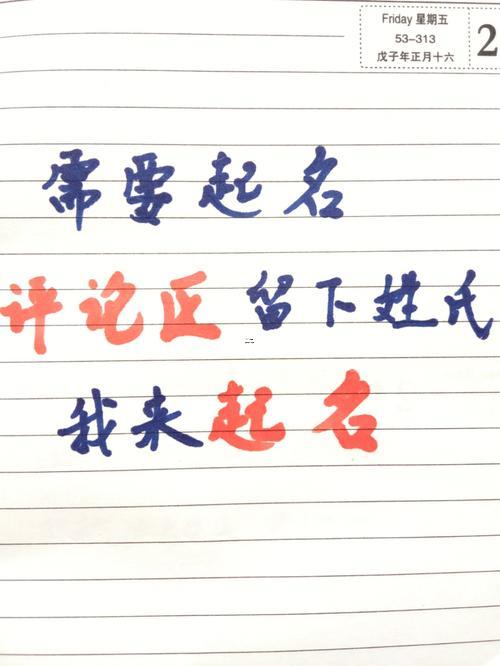 Friday 星期五
53-313
戊子年正月十六
2
需要起名
评论区留下姓氏
我来起名